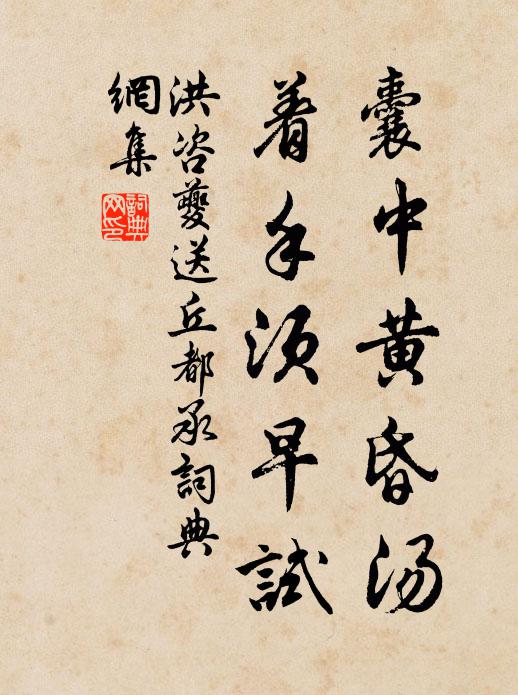 囊中黄昏汤
着手须早試
洪咨夔送丘都承詞典
網集
詞典
网印